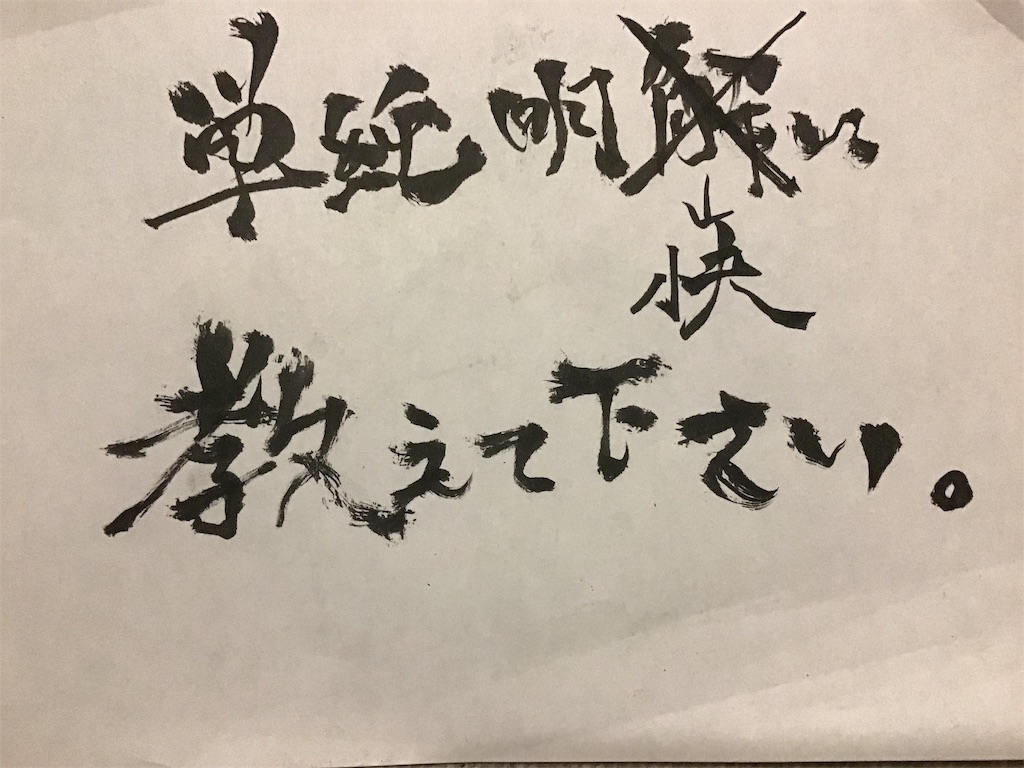 単純明解に
快
教えて下さい。